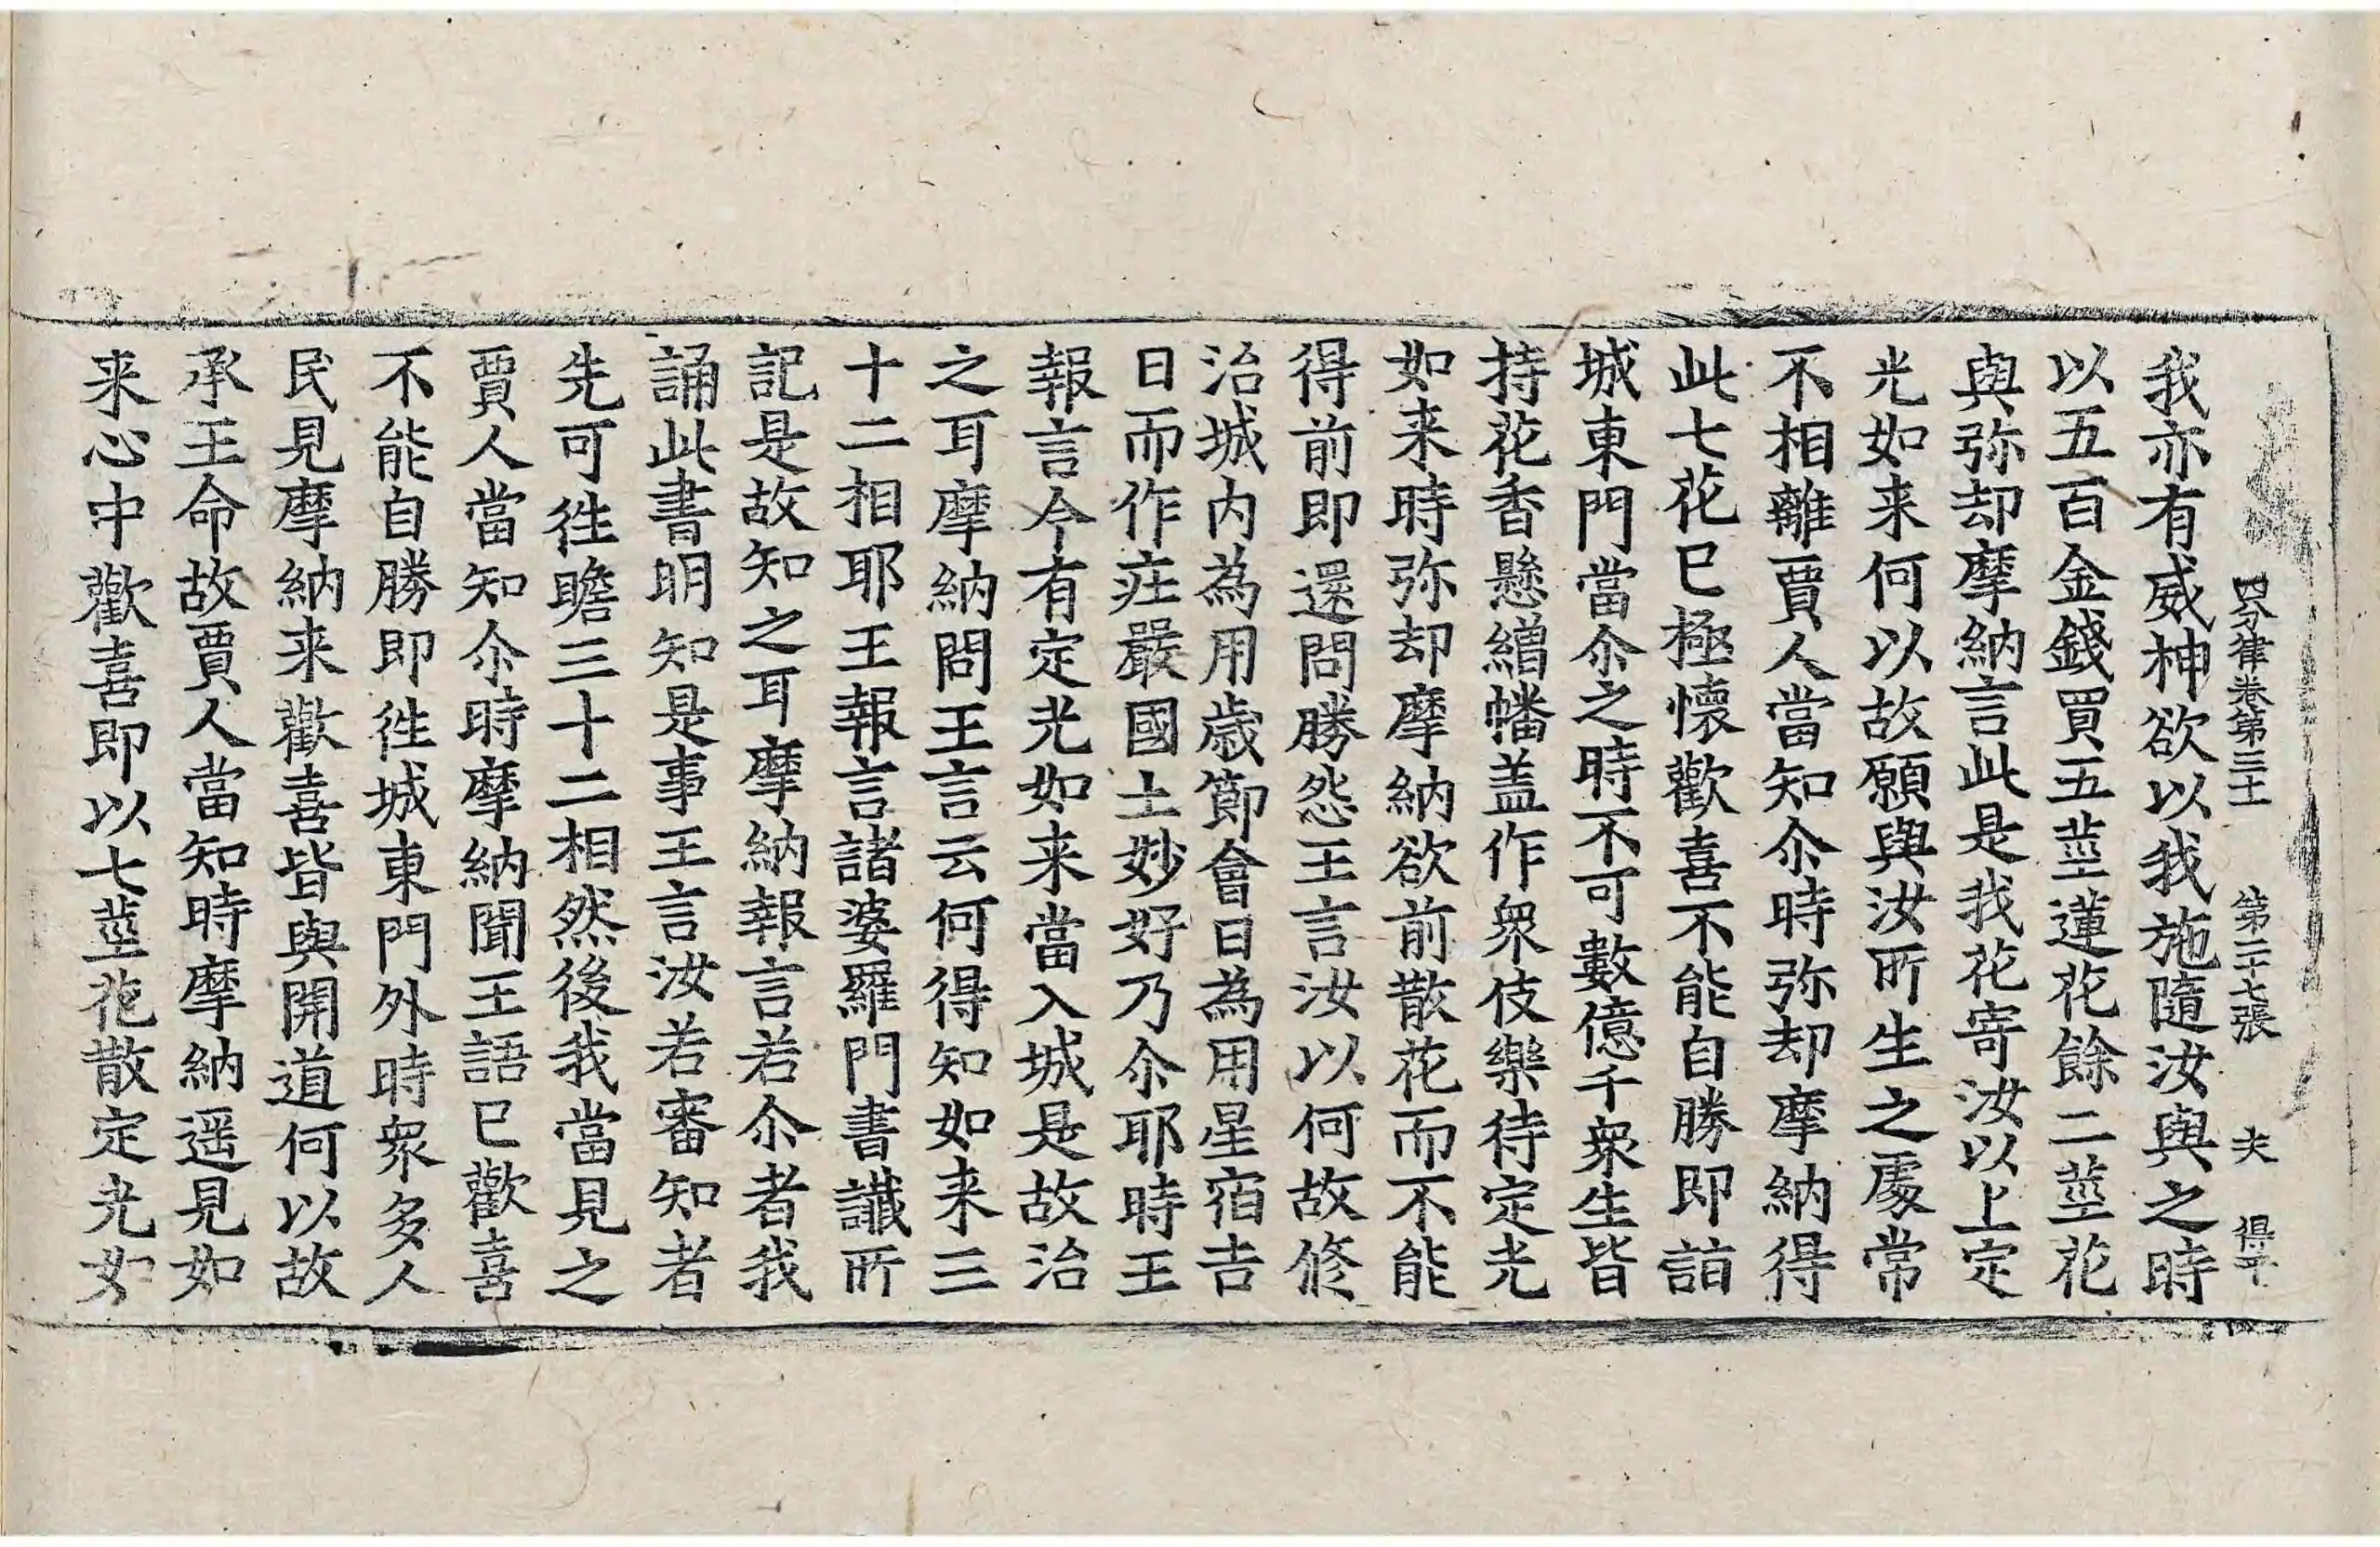 四分律卷第三十一 第二十七張 夫 得平
我亦有威神欲以我施隨汝與之時
以五百金錢買五莖蓮花餘二莖花
與弥却摩納言此是我花寄汝以上定
光如来何以故願與汝所生之處常
不相離賈人當知尒時弥却摩納得
此七花已極懷歡喜不能自勝即詣
城東門當尒之時不可數億千衆生皆
持花香懸繒幡盖作衆伎樂待定光
如来時弥却摩納欲前散花而不能
得前即還問勝怨王言汝以何故修
治城内為用歲節會日為用星宿吉
日而作莊嚴國土妙好乃尒耶時王
報言今有定光如来當入城是故治
之耳摩納問王言云何得知如来三
十二相耶王報言諸婆羅門書讖所
記是故知之耳摩納報言若尒者我
誦此書明知是事王言汝若審知者
先可徃瞻三十二相然後我當見之
賈人當知尒時摩納聞王語已歡喜
不能自勝即徃城東門外時衆多人
民見摩納来歡喜皆與開道何以故
承王命故賈人當知時摩納遥見如
来心中歡喜即以七莖花散定光如